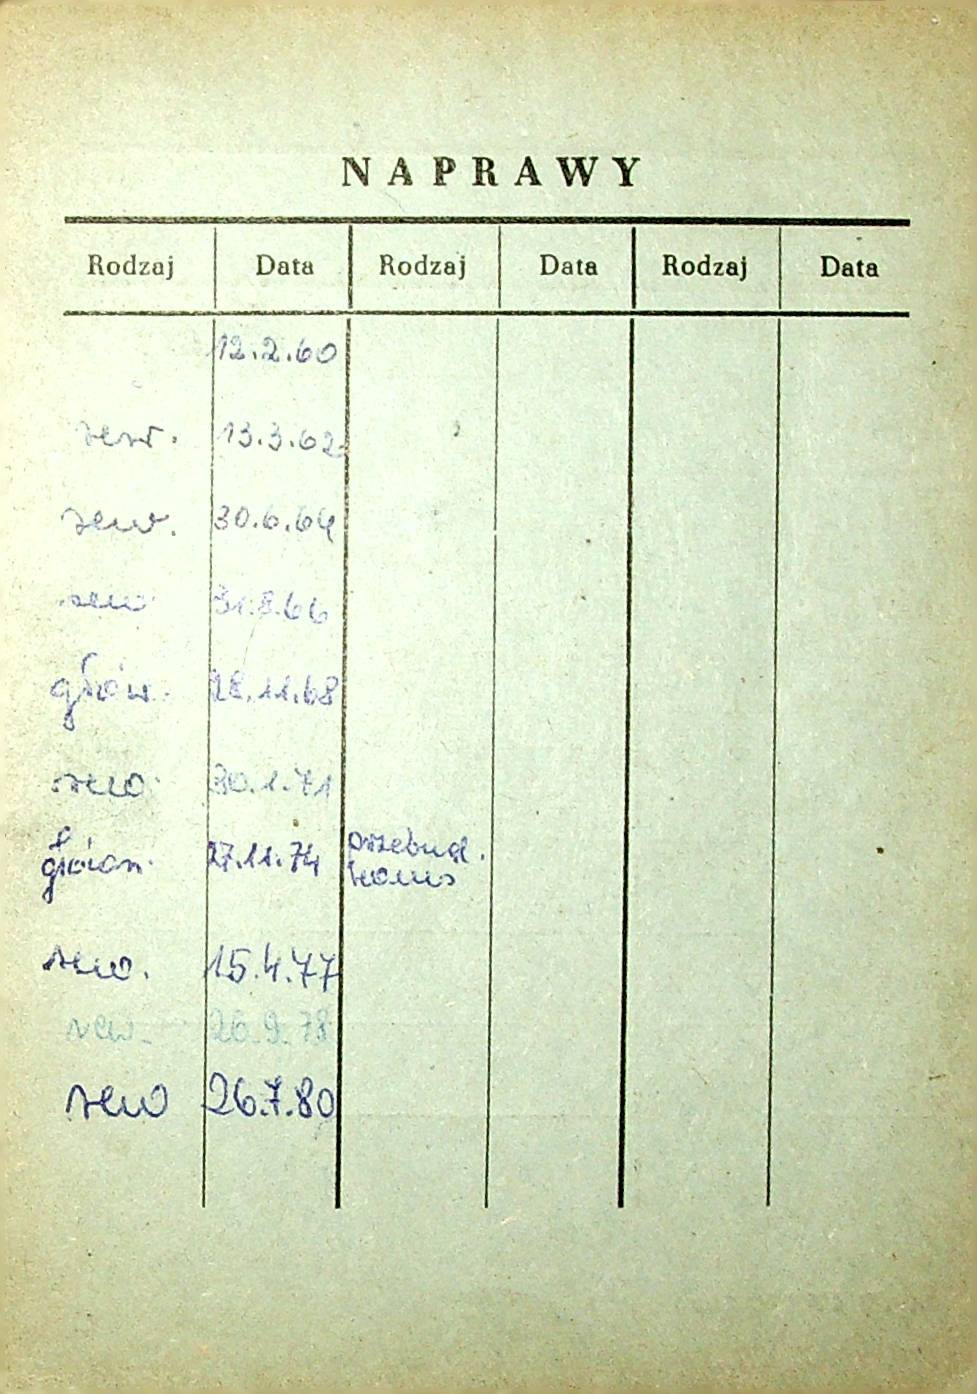 NAPRAWY
Rodzaj Data Rodzaj Data Rodzaj Data
12.2.60
rew. 13.3.62
rew. 30.6.64
rew. 31.8.66
głów. 28.11.68
rew. 30.1.71
główn. 27.11.74 przebud.
rew. 15.4.77
rew. 26.9.78
rew 26.7.80